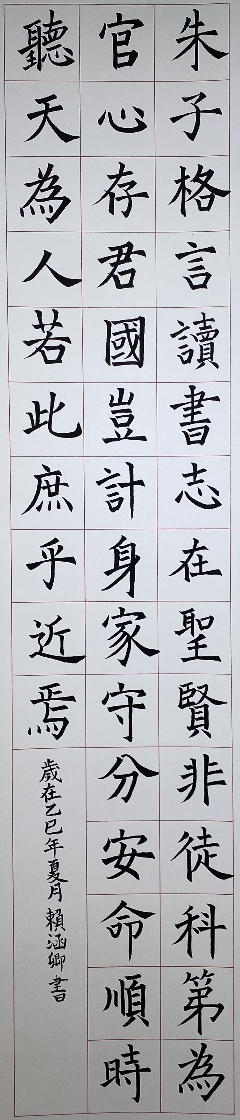 朱子格言讀書志在聖賢非徒科第為
官心存君國豈計身家守分安命順時
聽天為人若此庶乎近焉
歲在乙巳年夏月賴涵卿書